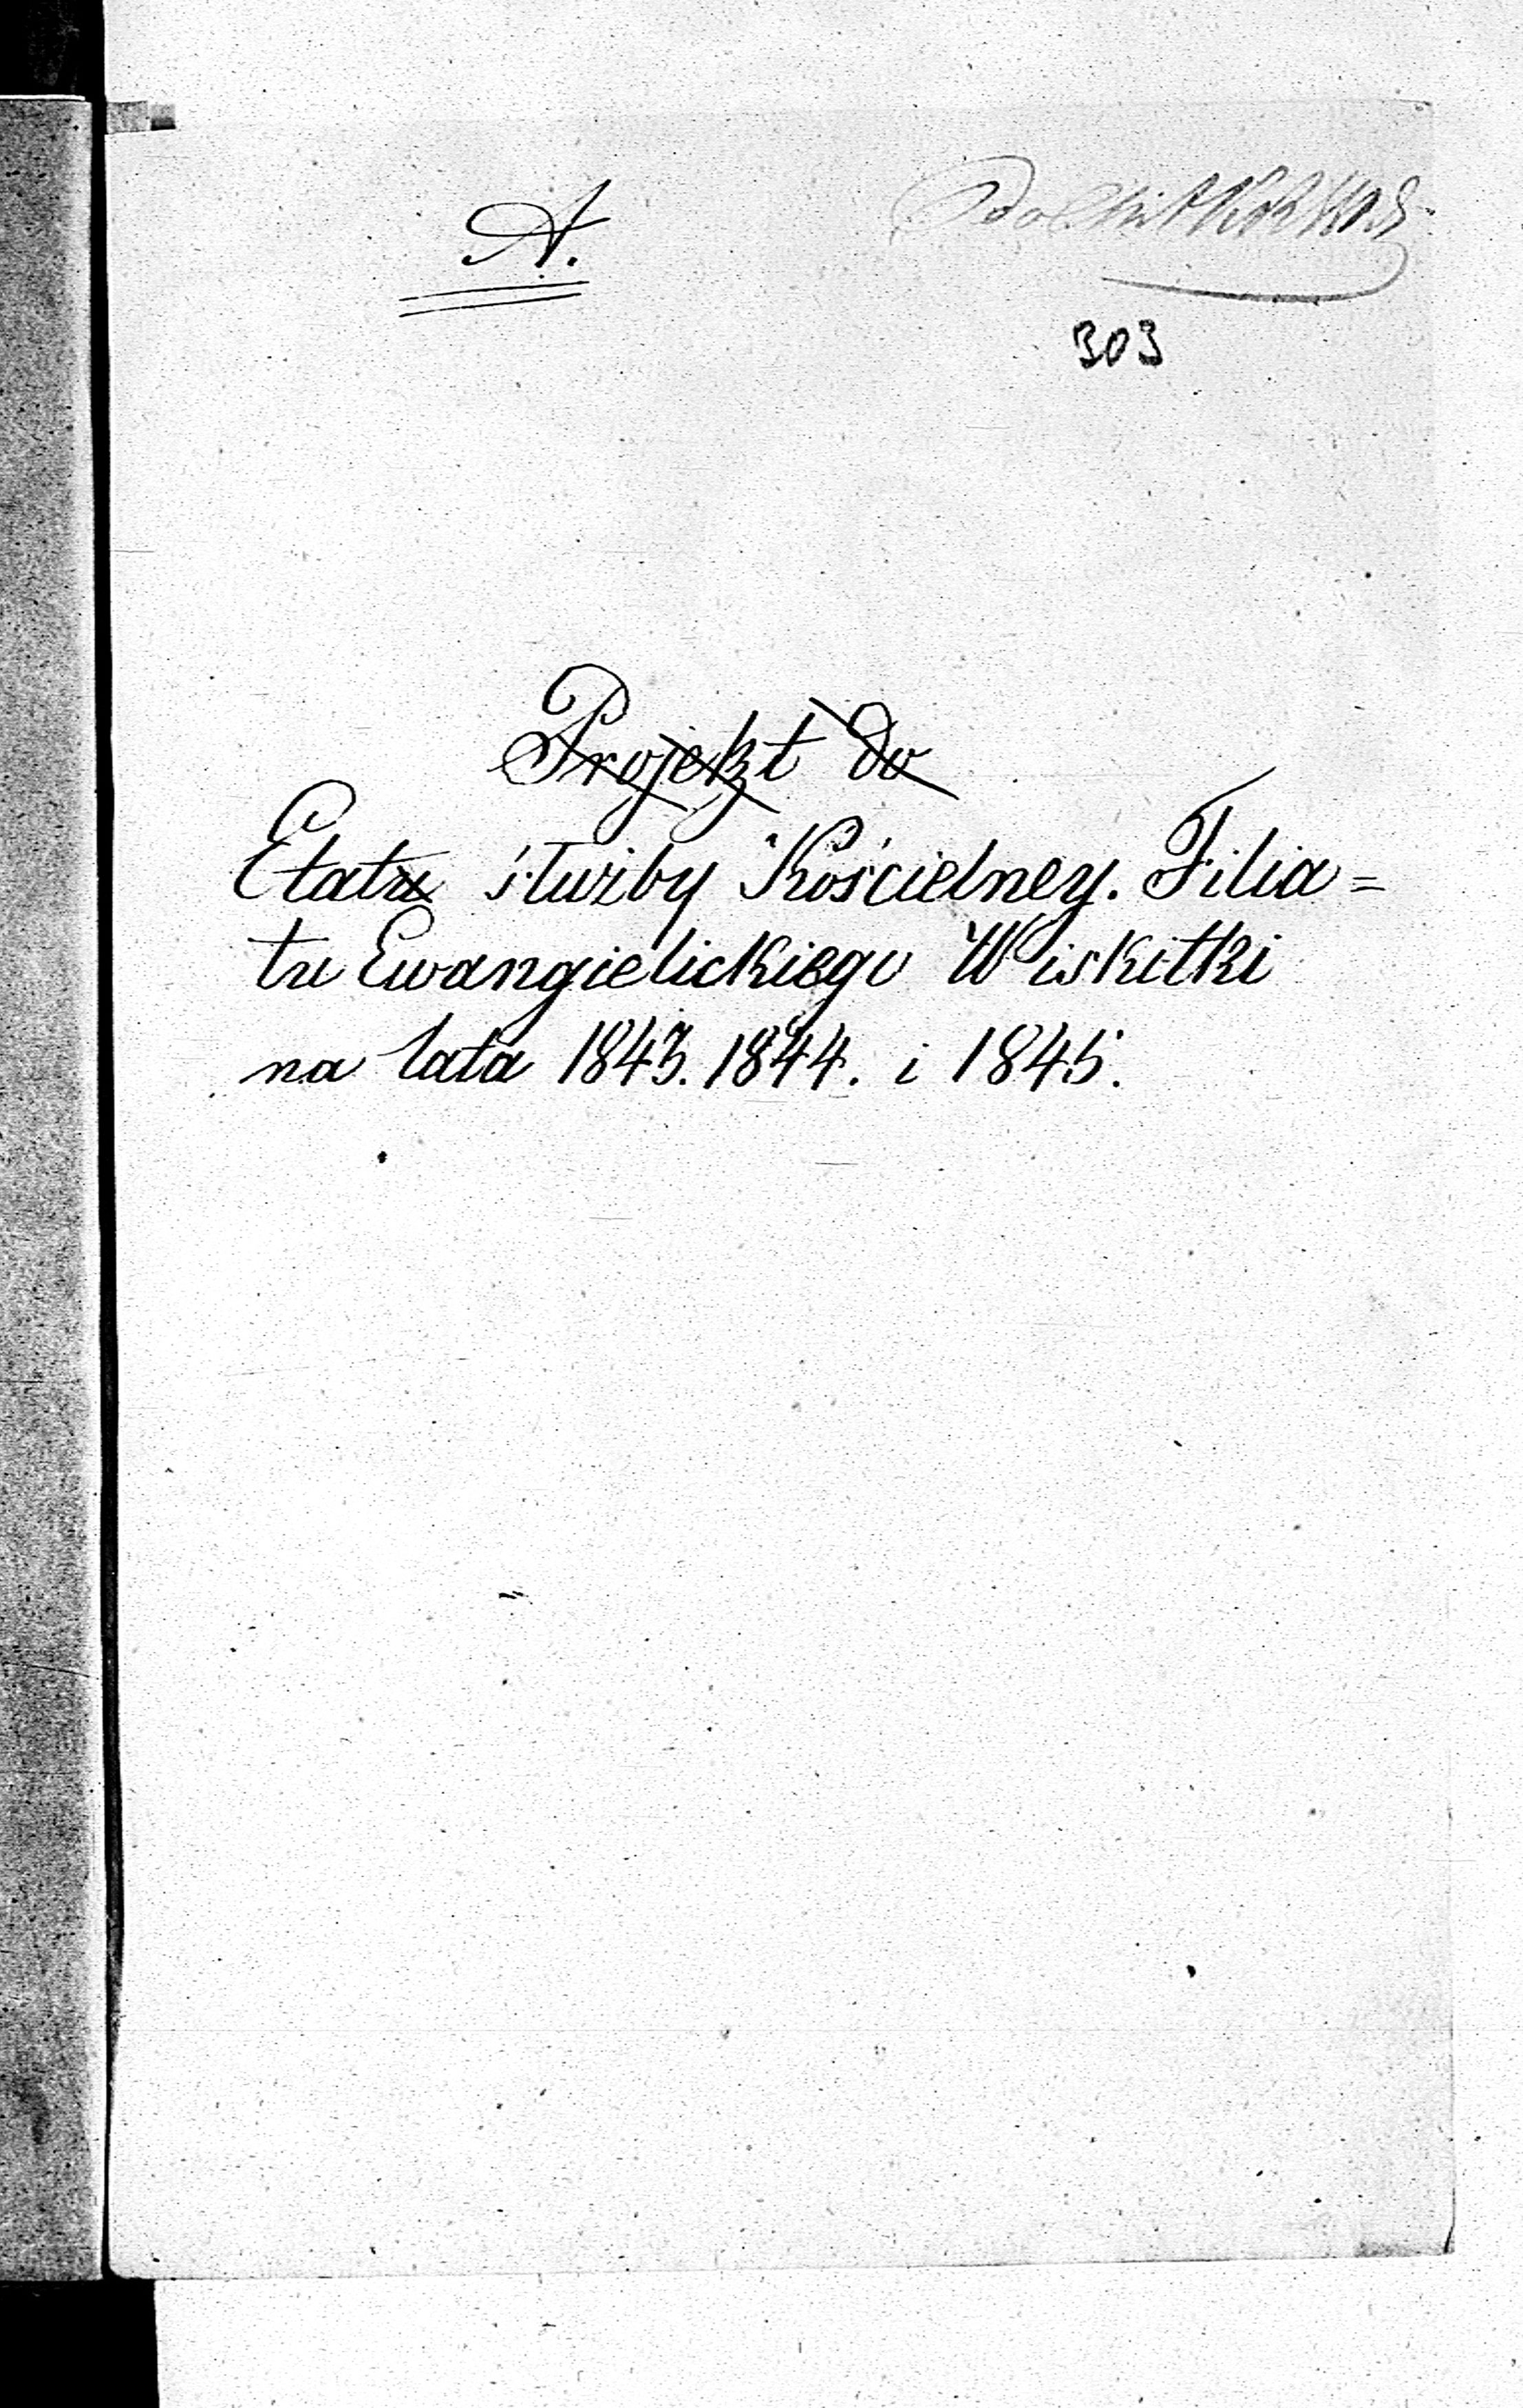 A.
303
Projekt do
Etatu służby Kościelney. Filia=
tu Ewangielickiego Wiskitki
na lata 1843. 1844. i 1845.